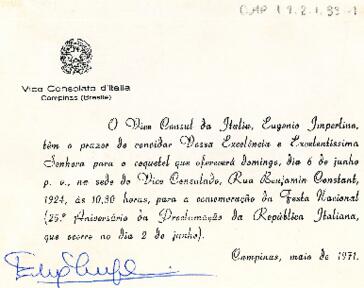 CAP 1.9.2.1.93-1
Vice Consolato d'Italia
Campinas (Brasile)
O Vice Consul da Italia, Eugenio Impertino,
têm o prazer de convidar Vossa Excelência e Excelentíssima
Senhora para o coquetel que oferecerá domingo, dia 6 de junho
p. v., na sede do Vice Consulado, Rua Benjamin Constant,
1924, às 10,30 horas, para a comemoração da Festa Nacional
(25.º Aniversário da Proclamação da República Italiana,
que ocorre no dia 2 de junho).
Campinas, maio de 1971.